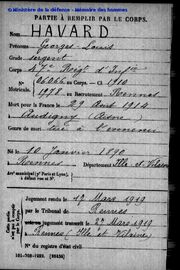 © Ministère de la défense - Mémoire des hommes
PARTIE À REMPLIR PAR LE CORPS.
Nom HAVARD
Prénoms Georges Louis
Grade sergent
Corps 47e Regt d'Infie
N° 06066 au Corps. — Cl. 1910
Matricule. 1978 au Recrutement Rennes
Mort pour la France le 29 Août 1914
à (Aisne)
Genre de mort tué à l'ennemi
Né le 10 Janvier 1890
à Rennes Département Ille et Vilaine
Arrt municipal (pr Paris et Lyon),
à défaut rue et N°.
Jugement rendu le 12 Mars 1919
par le Tribunal de Rennes
acte ou jugement transcrit le 27 Mars 1919
à Rennes (Ille et Vilaine)
N° du registre d'état civil